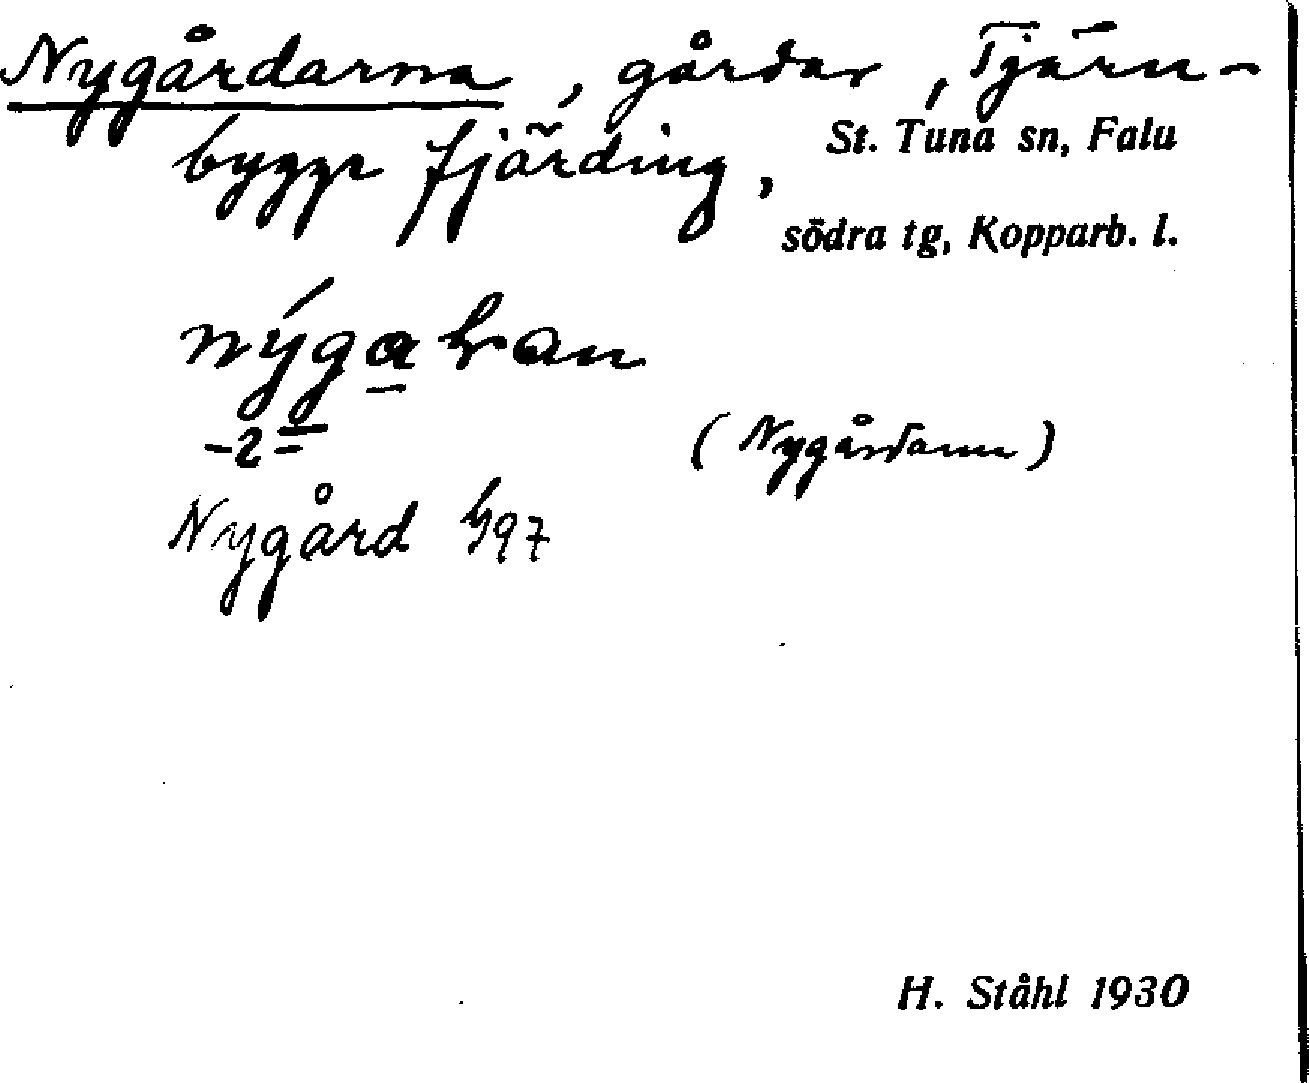 Nygårdarna, gårdar, Tjärn-
bygge fjärding, St. Tuna sn, Falu
södra tg, Kopparb. l.
-2=
(Nygårdarna)
Nygård
H. Ståhl 1930